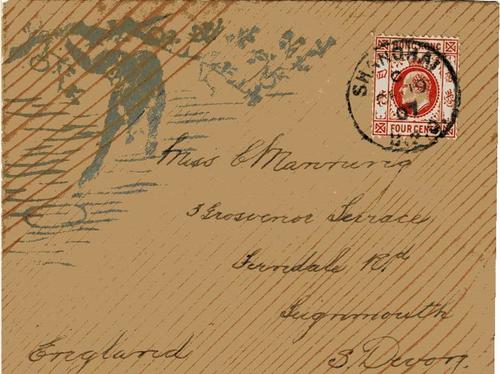 HONG KONG
FOUR CENTS
SHANGHAI
07
Miss E Manning
3 Grosvenor Terrace
Ferndale Rd
Teignmouth
S. Devon
England